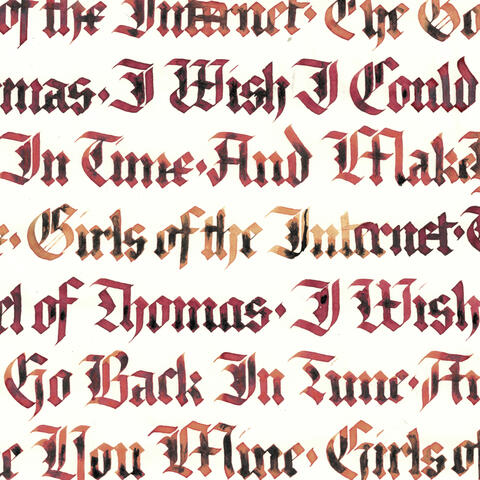 of the Internet· The Go
mas· I Wish I Could
In Time· And Make
e· Girls of the Internet· T
el of Thomas· I Wish
Go Back In Time· An
e You Mine· Girls of